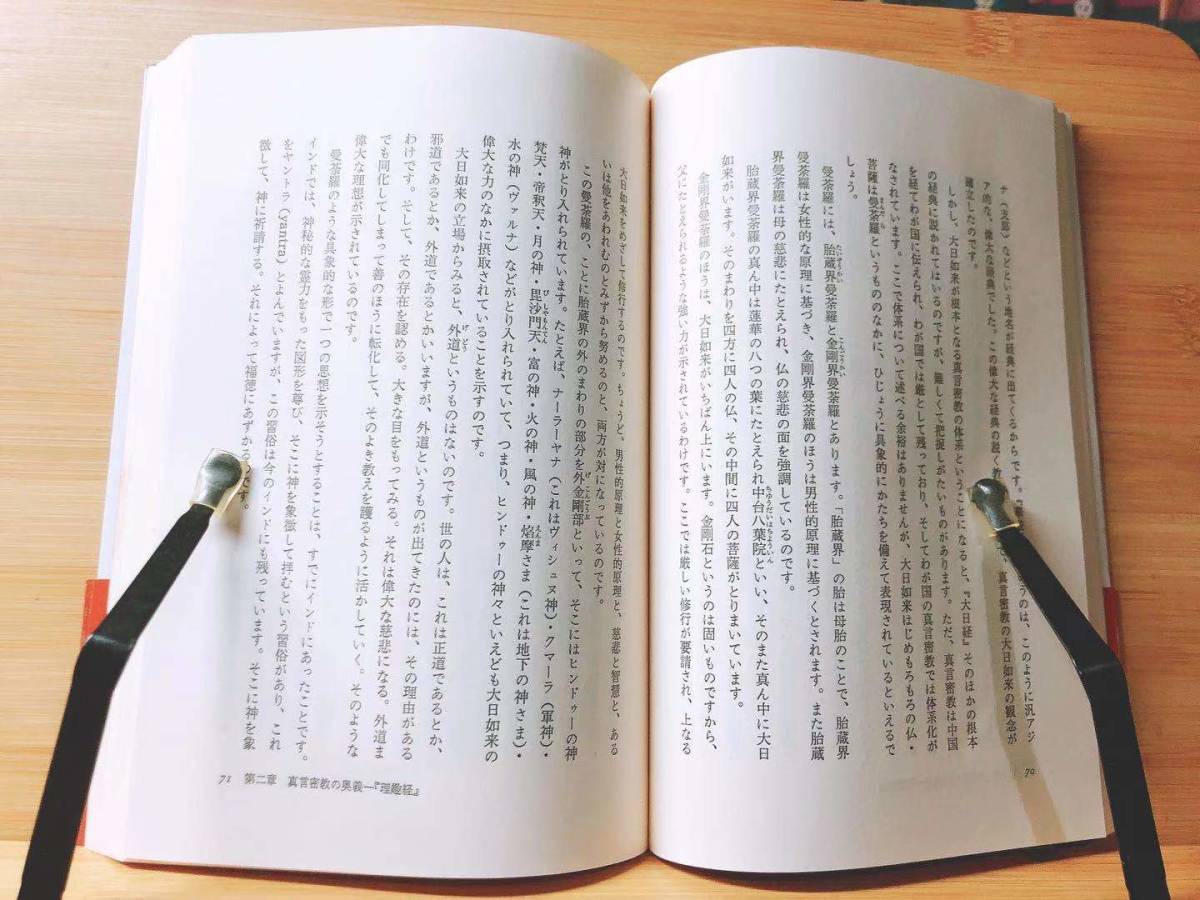 ナ（支那）などという地名が経典に出てくるからです。
うのは、このように汎アジ
ア的な、偉大な経典でした。この偉大な経典の説く教
、真言密教の大日如来の観念が
確立したのです。
しかし、大日如来が根本となる真言密教の体系ということになると、『大日経』そのほかの根本
の経典に説かれてはいるのですが、難しくて把捉しがたいものがあります。ただ、真言密教は中国
を経てわが国に伝えられ、わが国では厳として残っており、そしてわが国の真言密教では体系化が
なされています。ここで体系について述べる余裕はありませんが、大日如来はじめもろもろの仏・
菩薩は曼荼羅というもののなかに、ひじょうに具象的にかたちを備えて表現されているといえるで
しょう。
曼荼羅には、胎蔵界曼荼羅と金剛界曼荼羅とあります。「胎蔵界」の胎は母胎のことで、胎蔵界
曼荼羅は女性的な原理に基づき、金剛界曼荼羅のほうは男性的原理に基づくとされます。また胎蔵
界曼荼羅は母の慈悲にたとえられ、仏の慈悲の面を強調しているのです。
胎蔵界曼荼羅の真ん中は蓮華の八つの葉にたとえられ中台八葉院といい、そのまた真ん中に大日
如来がいます。そのまわりを四方に四人の仏、その中間に四人の菩薩がとりまいています。
金剛界曼荼羅のほうは、大日如来がいちばん上にいます。金剛石というのは固いものですから、
父にたとえられるような強い力が示されているわけです。ここでは厳しい修行が要請され、上なる
70
大日如来をめざして修行するのです。ちょうど、男性的原理と女性的原理と、慈悲と智慧と、ある
いは他をあわれむのとみずから努めるのと、両方が対になっているのです。
この曼荼羅の、ことに胎蔵界の外のまわりの部分を外金剛部といって、そこにはヒンドゥーの神
神がとり入れられています。たとえば、ナーラーヤナ（これはヴィシュヌ神）・クマーラ（軍神）・
梵天・帝釈天・月の神・毘沙門天・富の神・火の神・風の神・焔摩さま（これは地下の神さま）・
水の神（ヴァルナ）などがとり入れられていて、つまり、ヒンドゥーの神々といえども大日如来の
偉大な力のなかに摂取されていることを示すのです。
大日如来の立場からみると、外道というものはないのです。世の人は、これは正道であるとか、
邪道であるとか、外道であるとかいいますが、外道というものが出てきたのには、その理由がある
わけです。そして、その存在を認める。大きな目をもってみる。それは偉大な慈悲になる。外道ま
でも同化してしまって善のほうに転化して、そのよき教えを護るように活かしていく。そのような
偉大な理想が示されているのです。
曼荼羅のような具象的な形で一つの思想を示そうとすることは、すでにインドにあったことです。
インドでは、神秘的な霊力をもった図形を尊び、そこに神を象徴して拝むという習俗があり、これ
をヤントラ（yantra）とよんでいますが、この習俗は今のインドにも残っています。そこに神を象
徴して、神に祈請する。それによって福徳にあずかる
です。
71 第二章 真言密教の奥義―『理趣経』